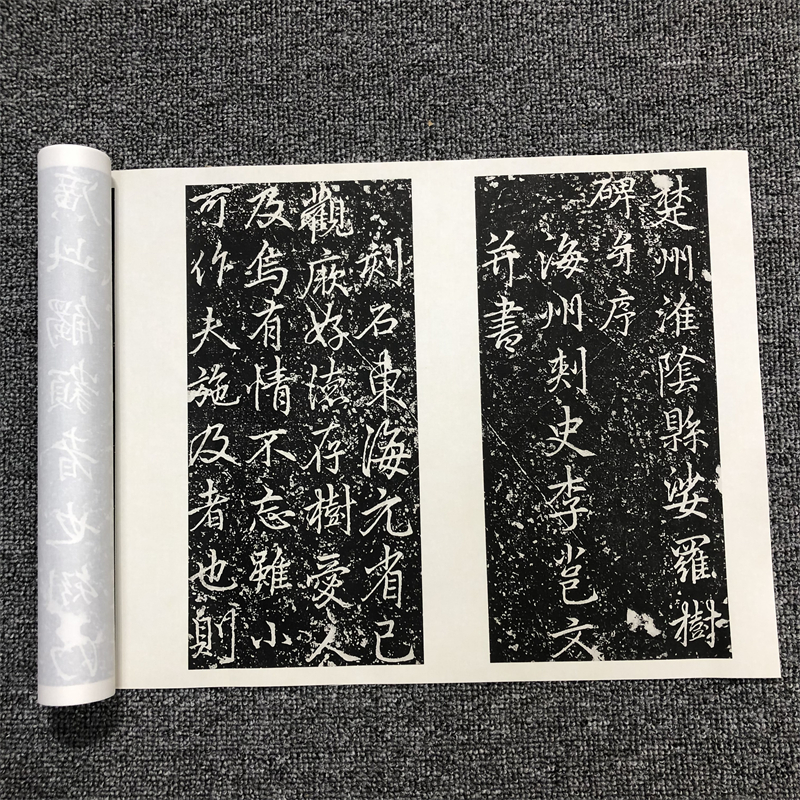 楚州淮陰縣娑羅樹
碑并序
海州刺史李邕文
并書
刻石東海元省已
觀厥好德存樹愛人
及烏有情不忘雖小
可作夫施及者也則
廣此觸類者也